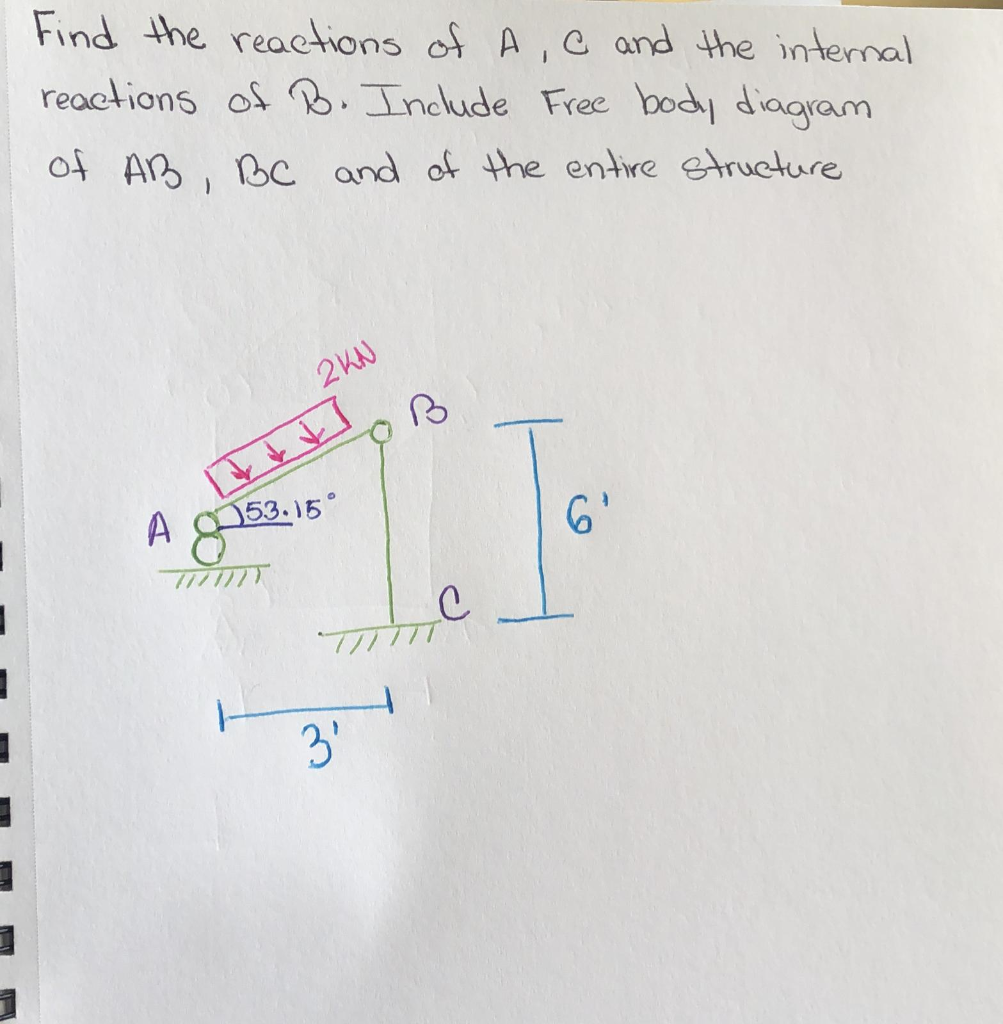 Find the reactions of A, C and the internal
reactions of B. Include Free body diagram
of AB, BC and of the entire structure
2KN
B
53.15°
A
6'
C
3'